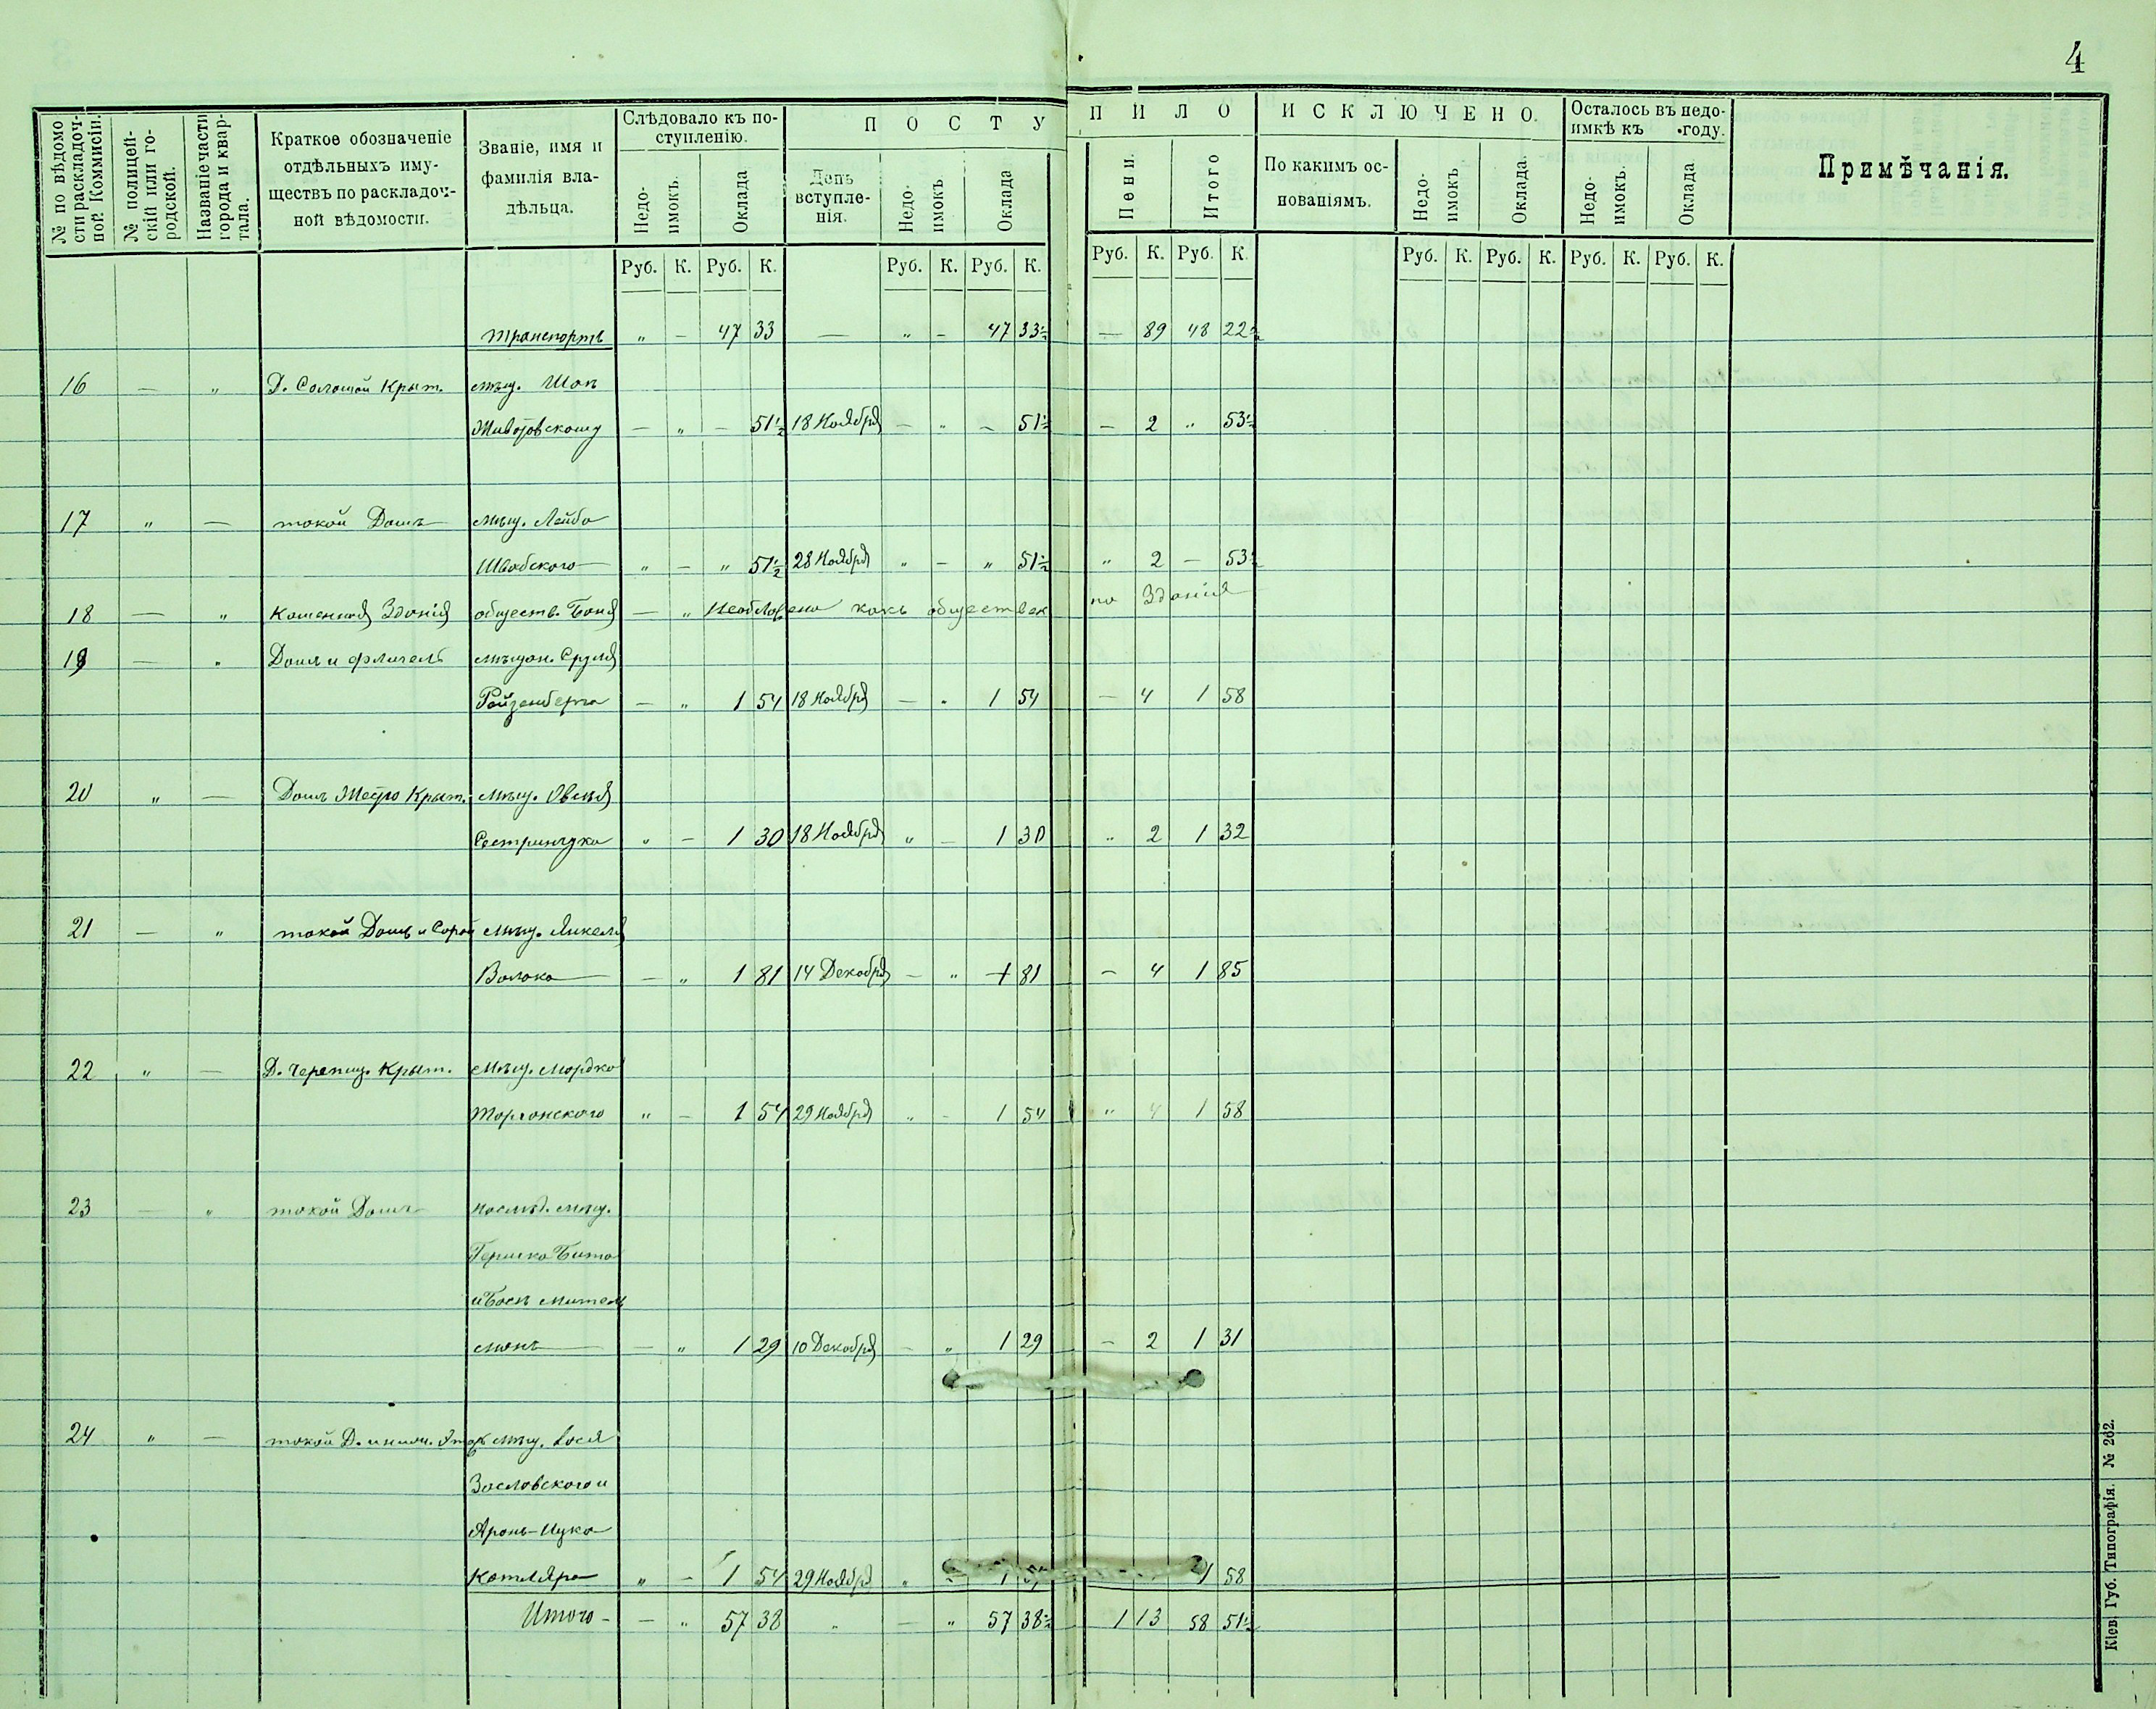 4
№ по вѣдомости раскладочной Коммисіи.
№ полицейскій или городской.
Названіе части города и квартала.
Краткое обозначеніе отдѣльныхъ имуществъ по раскладочной вѣдомости.
Званіе, имя и фамилія владѣльца.
Слѣдовало къ поступленію.
Недоимокъ.
Оклада
П О С Т У П И Л О
День вступленія.
Недоимокъ.
Оклада
Пени.
Итого
И С К Л Ю Ч Е Н О.
По какимъ основаніямъ.
Недоимокъ.
Оклада.
Осталось въ недоимкѣ къ году.
Недоимокъ.
Оклада
Примѣчанія.
Руб. К. Руб. К. Руб. К. Руб. К. Руб. К. Руб. К. Руб. К. Руб. К. Руб. К. Руб. К.
Транспортъ " — 47 33 — " — 47 33½ — 89 48 22½
16 — " Д. Соломой Крыт. мѣщ.
Животовскому — " — 51½ 18 Ноября — " — 51½ — 2 " 53½
17 " — такой Домъ мѣщ. Лейба
Швабского " — " 51½ 28 Ноября " — " 51½ " 2 — 53½
18 — " Каменная Зданія обществ. Баня — " Необложено какъ общественно Зданія
19 — " Домъ и флигель мѣщан. Сруля
Ройзенберга — " 1 54 18 Ноября — " 1 54 — 4 1 58
20 " — Домъ Крыт. мѣщ. Овсея
" — 1 30 18 Ноября " — 1 30 " 2 1 32
21 — " такой Домъ и Сарай мѣщ. Янкеля
Волоха — " 1 81 14 Декабря — " 1 81 — 4 1 85
22 " — Д. Черепиц. Крыт. мѣщ. Мордко
Торговского " — 1 54 29 Ноября " — 1 54 " 4 1 58
23 — " такой Домъ наслѣд. мѣщ.
Гершка
и Мительманъ — " 1 29 10 Декабря — " 1 29 — 2 1 31
24 " — такой Д. мѣщ.
Заславского и
Аронъ-Ицка
Котляра " — 1 54 29 Ноября " — 1 54 1 58
Итого — — " 57 38 " — " 57 38½ 1 13 58 51½
Кіев. Губ. Типографія. № 262.